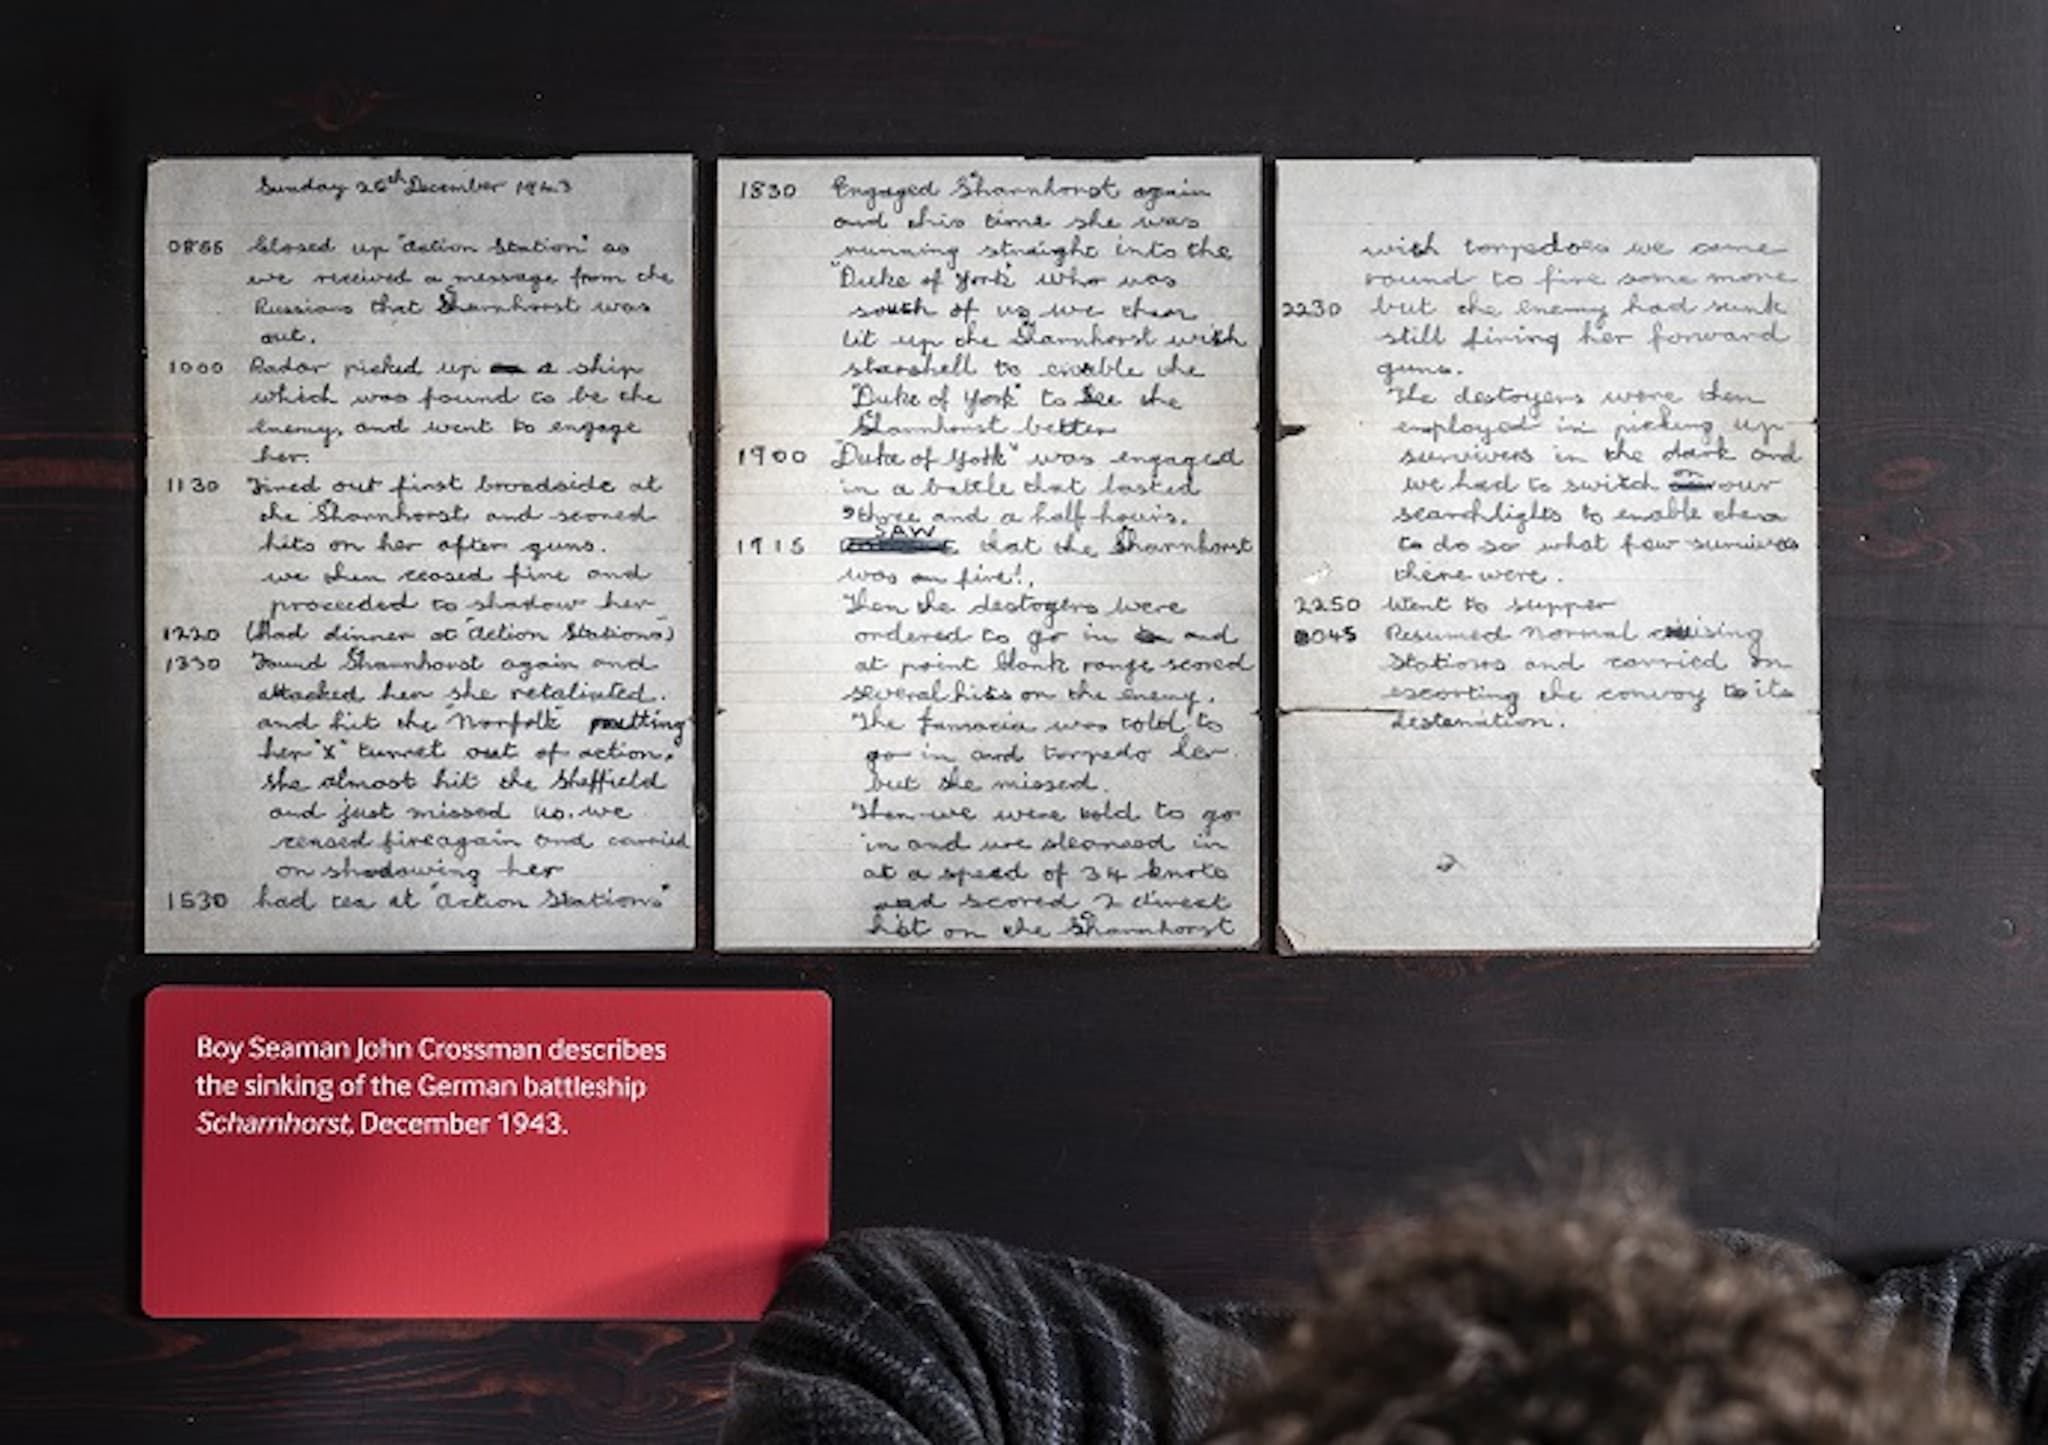 Sunday 26th December 1943
0855 Closed up "Action Station" as
we received a message from the
Russians that Sharnhorst was
out.
1000 Radar picked up a ship
which was found to be the
enemy, and went to engage
her.
1130 Fired out first broadside at
the Sharnhorst and scored
hits on her after guns.
we then ceased fire and
proceeded to shadow her
1220 (Had dinner at "Action Stations")
1330 Found Sharnhorst again and
attacked her she retaliated.
and hit the "Norfolk" putting
her "X" turret out of action.
She almost hit the Sheffield
and just missed us. we
ceased fire again and carried
on shadowing her
1530 had tea at "Action Stations"
1830 Engaged Sharnhorst again
and this time she was
running straight into the
"Duke of York" who was
south of us, we then
lit up the Sharnhorst with
starshell to enable the
"Duke of York" to see the
Sharnhorst better
1900 "Duke of York" was engaged
in a battle that lasted
three and a half hours.
SAW
1915 that the Sharnhorst
was on fire!.
Then the destoyers were
ordered to go in and
at point blank range scored
several hits on the enemy.
The Jamacia was told to
go in and torpedo her
but she missed.
Then we were told to go
in and we steamed in
at a speed of 34 knots
and scored 2 direct
hit on the Sharnhorst
with torpedoes we came
round to fire some more
2230 but the enemy had sunk
still firing her forward
guns.
The destoyers were then
employed in picking up
survivers in the dark and
on
we had to switch our
searchlights to enable them
to do so what few survivers
there were.
2250 Went to supper
0045 Resumed normal cruising
Stations and carried on
escorting the convoy to its
destenation.
Boy Seaman John Crossman describes
the sinking of the German battleship
Scharnhorst, December 1943.